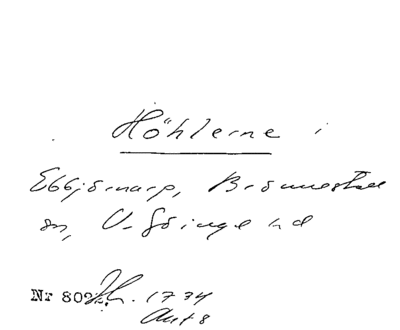 Höhlerne i
Ebbjörnarp, Brönnestad
sn, V. Göinge hd
Nr 802. 1734
Ant 8